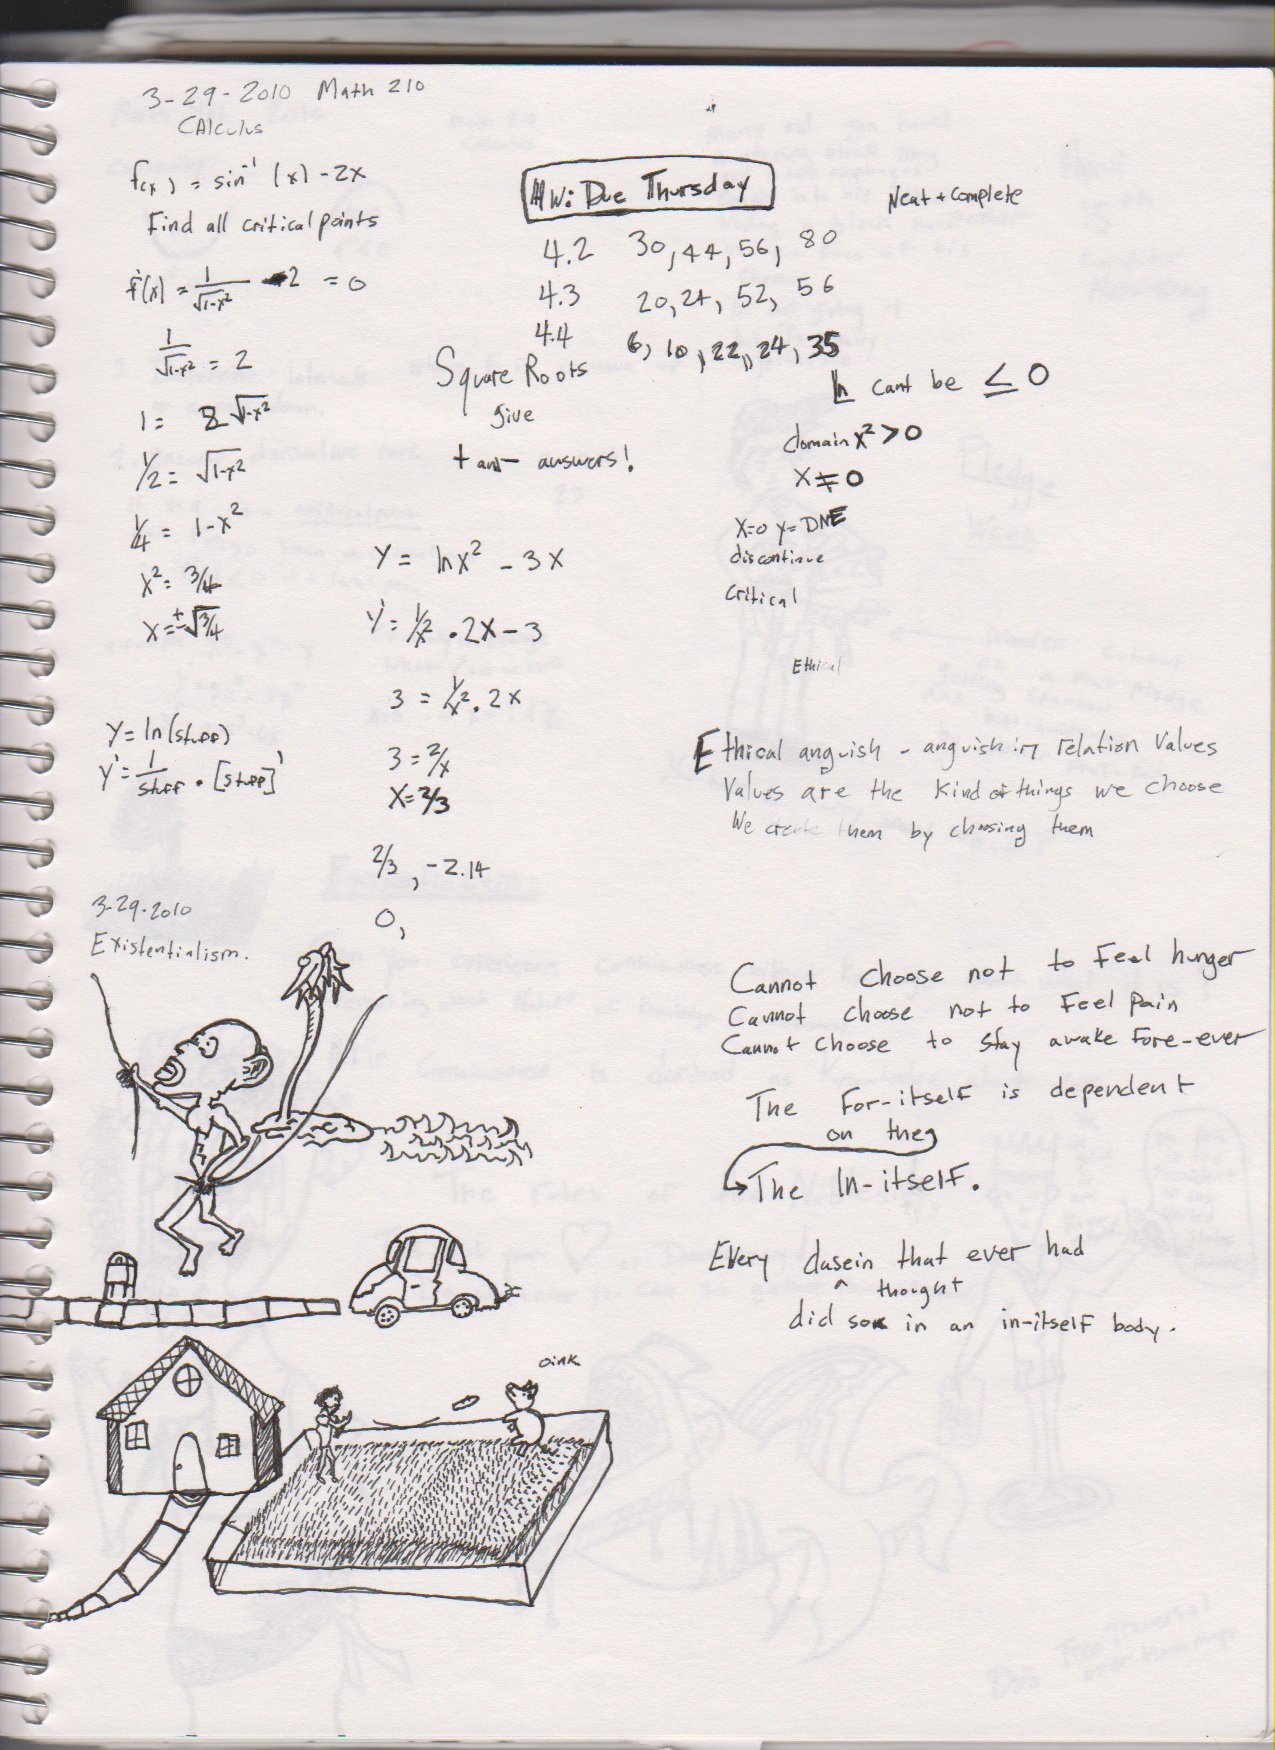 3-29-2010 Math 210
CAlculus
f(x) = sin⁻¹(x) - 2x
Find all critical points
f'(x) = 1/√1-x² - 2 = 0
1/√1-x² = 2
1 = 2√1-x²
1/2 = √1-x²
1/4 = 1-x²
x² = 3/4
x = ±√3/4
y = ln(stuff)
y' = 1/stuff • [stuff]'
HW: Due Thursday
Neat + complete
4.2 30, 44, 56, 80
4.3 20, 24, 52, 56
4.4 6, 10, 22, 24, 35
Square Roots
give
+ and - answers!
ln cant be ≤ 0
domain x² > 0
x ≠ 0
x=0 y=DNE
discontinue
critical
y = lnx² - 3x
y' = 1/x² • 2x - 3
3 = 1/x² • 2x
3 = 2/x
x = 2/3
2/3, -2.14
0,
Ethical
Ethical anguish - anguish in relation Values
Values are the kind of things we choose
We create them by choosing them
3-29-2010
Existentialism.
Cannot choose not to feel hunger
Cannot choose not to feel pain
Cannot choose to stay awake fore-ever
The for-itself is dependent
on the
The In-itself.
Every dasein that ever had
^ thought
did so in an in-itself body.
oink